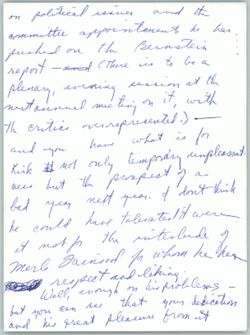 on political issues and the
committee appointments he has
pushed on the Bernstein
report – (There is to be a
plenary, evening session at the
next annual meeting on it, with
the critics overrepresented.) –
and you have what is for
him not only temporary unpleasant-
ness but the prospect of a
bad year next year. I don't think
he could have tolerated it were
it not for the interlude of
Merle Fainsod for whom he has
respect and liking.
Well, enough on his problems –
but you can see that your dedication
and his great pleasure from it